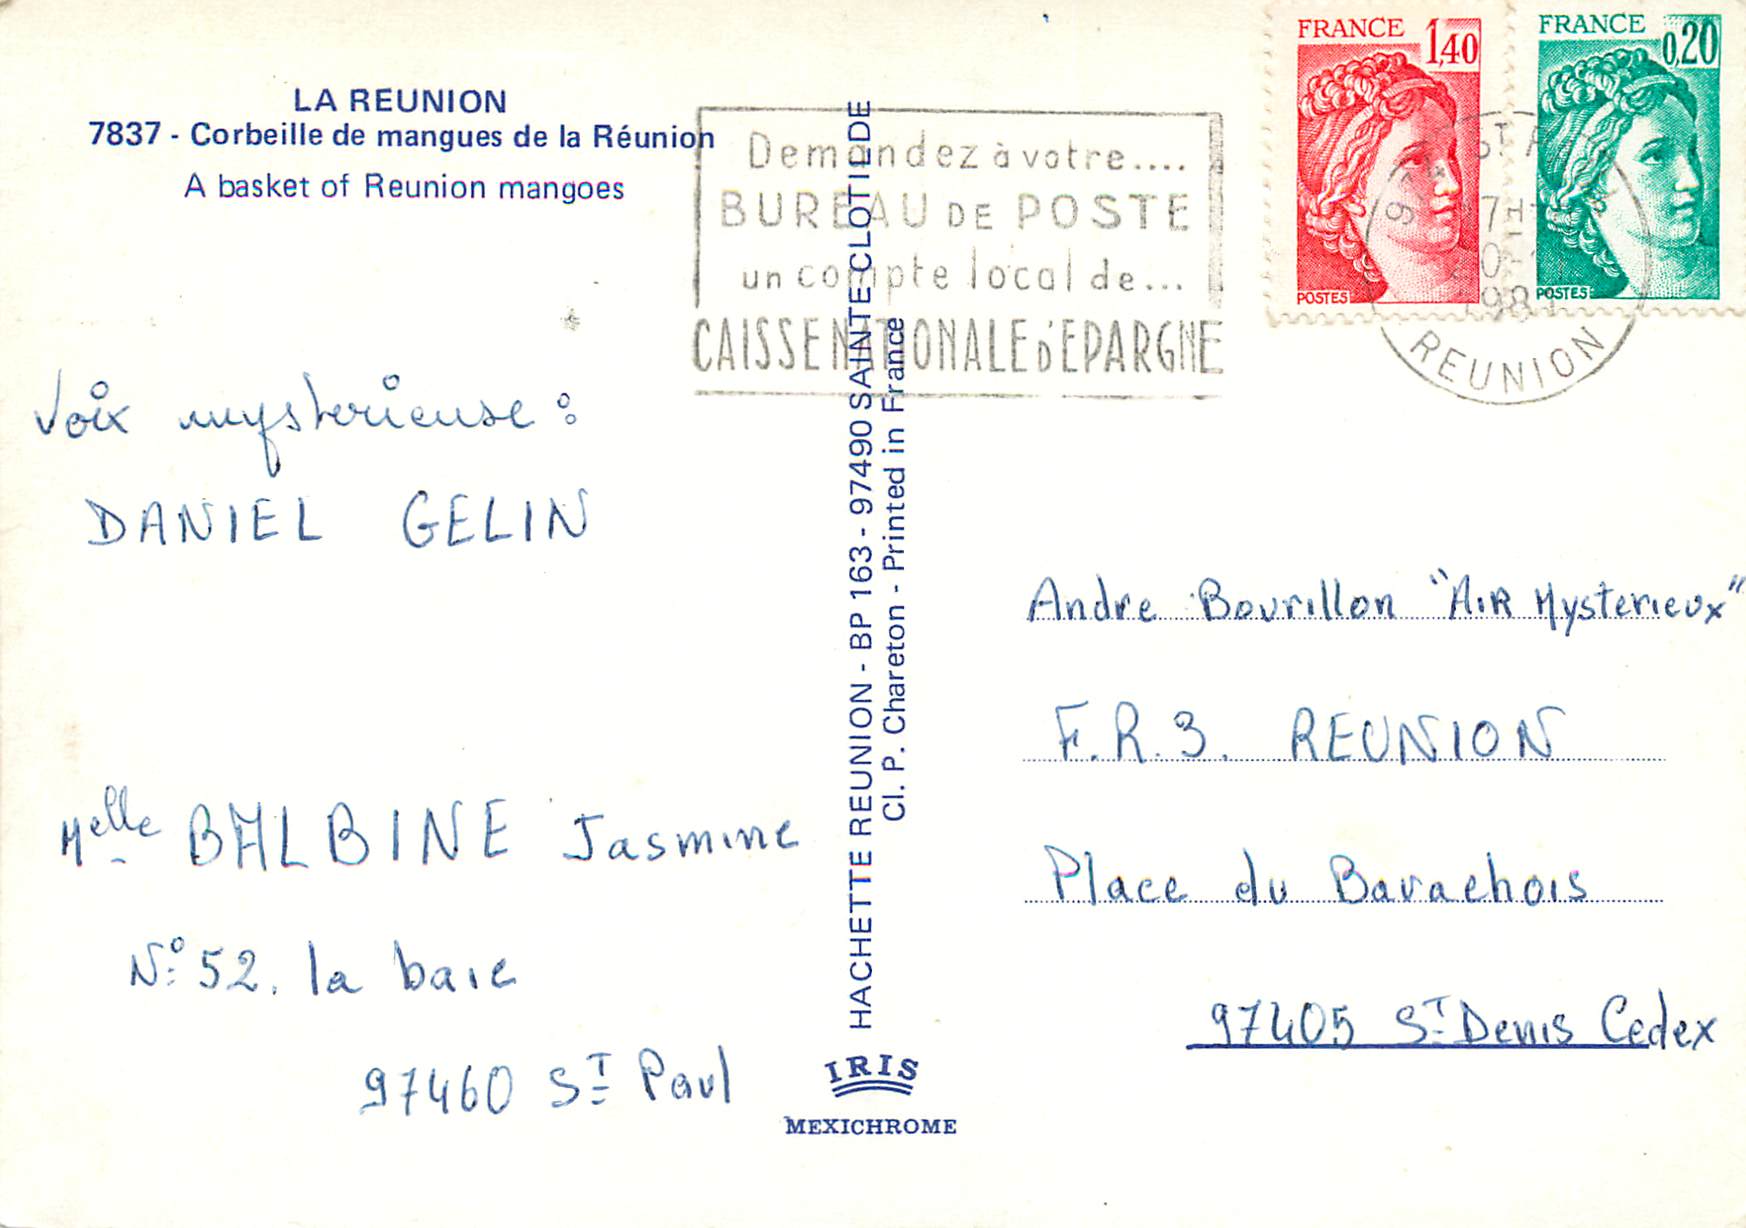 LA REUNION
7837 - Corbeille de mangues de la Réunion
A basket of Reunion mangoes
Demandez à votre....
BUREAU DE POSTE
un compte local de...
CAISSE NATIONALE D'EPARGNE
FRANCE 1,40
POSTES
FRANCE 0,20
POSTES
REUNION
Voix mysterieuse :
DANIEL GELIN
Melle BALBINE Jasmine
N° 52. la baie
97460 ST Paul
HACHETTE REUNION - BP 163 - 97490 SAINTE-CLOTILDE
Cl. P. Chareton - Printed in France
IRIS
MEXICHROME
Andre Bourillon "AIR Mysterieux"
F.R.3. REUNION
Place du Barachois
97405 ST Denis Cedex